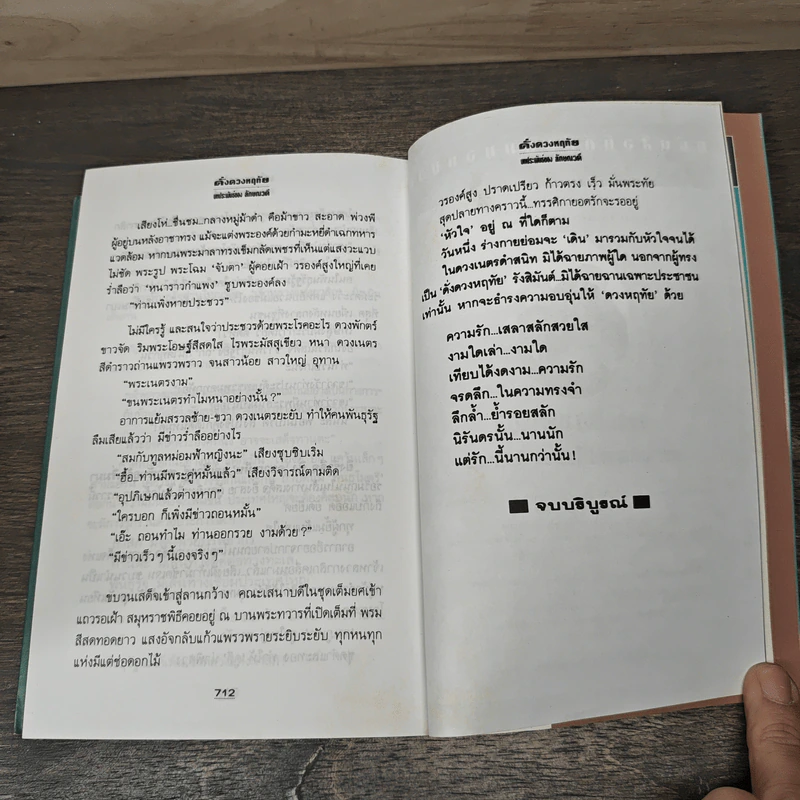 ดั่งดวงหฤทัย
บทประพันธ์ของ ลักษณวดี
เสียงโห่..ชื่นชม...กลางหมู่ม้าดำ คือม้าขาว สะอาด พ่วงพี
ผู้อยู่บนหลังอาชาทรง แม้จะแต่งพระองค์ด้วยกำมะหยี่ดำเฉกทหาร
แวดล้อม หากบนพระมาลาทรงเข็มกลัดเพชรที่เห็นแต่แสงวะแวบ
ไม่ชัด พระรูป พระโฉม ‘จับตา’ ผู้คอยเฝ้า วรองค์สูงใหญ่ที่เคย
ร่ำลือว่า ‘หนาราวกำแพง’ ซูบพระองค์ลง
“ท่านเพิ่งหายประชวร”
ไม่มีใครรู้ และสนใจว่าประชวรด้วยพระโรคอะไร ดวงพักตร์
ขาวจัด ริมพระโอษฐ์สีสดใส ไรพระมัสสุเขียว หนา ดวงเนตร
สีดำราวถ่านแพรวพราว จนสาวน้อย สาวใหญ่ อุทาน
“พระเนตรงาม”
“ขนพระเนตรทำไมหนาอย่างนั้น?”
อาการแย้มสรวลซ้าย-ขวา ดวงเนตรยะยับ ทำให้คนพันธุรัฐ
ลืมเสียแล้วว่า มีข่าวร่ำลืออย่างไร
“สมกับทูลหม่อมฟ้าหญิงนะ” เสียงซุบซิบเริ่ม
“ฮื้อ...ท่านมีพระคู่หมั้นแล้ว” เสียงวิจารณ์ตามติด
“อุปภิเษกแล้วต่างหาก”
“ใครบอก ก็เพิ่งมีข่าวถอนหมั้น”
“เอ๊ะ ถอนทำไม ท่านออกรวย งามด้วย?”
“มีข่าวเร็วๆ นี้เองจริงๆ”
ขบวนเสด็จเข้าสู่ลานกว้าง คณะเสนาบดีในชุดเต็มยศเข้า
แถวรอเฝ้า สมุหราชพิธีคอยอยู่ ณ บานพระทวารที่เปิดเต็มที่ พรม
สีสดทอดยาว แสงอัจกลับแก้วแพรวพรายระยิบระยับ ทุกหนทุก
แห่งมีแต่ช่อดอกไม้
712
ดั่งดวงหฤทัย
บทประพันธ์ของ ลักษณวดี
วรองค์สูง ปราดเปรียว ก้าวตรง เร็ว มั่นพระทัย
สุดปลายทางคราวนี้...ทรรศิกายอดรักจะรออยู่
‘หัวใจ’ อยู่ ณ ที่ใดก็ตาม
วันหนึ่ง ร่างกายย่อมจะ ‘เดิน’ มารวมกับหัวใจจนได้
ในดวงเนตรดำสนิท มิได้ฉายภาพผู้ใด นอกจากผู้ทรง
เป็น ‘ดั่งดวงหฤทัย’ รังสิมันต์...มิได้ฉายฉานเฉพาะประชาชน
เท่านั้น หากจะธำรงความอบอุ่นให้ ‘ดวงหฤทัย’ ด้วย
ความรัก...เสลาสลักสวยใส
งามใดเล่า...งามใด
เทียบได้งดงาม...ความรัก
จรดลึก...ในความทรงจำ
ลึกล้ำ...ย้ำรอยสลัก
นิรันดรนั้น...นานนัก
แต่รัก...นี้นานกว่านั้น!
จบบริบูรณ์